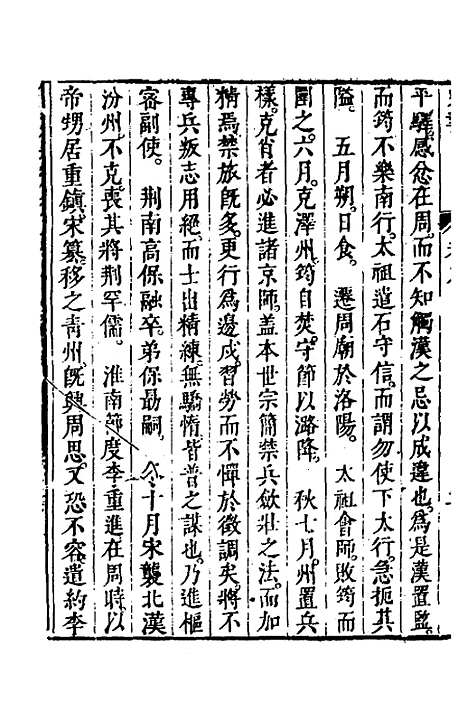 平驛感忿在周而不知觸漢之忌以成違也爲是漢置監
而筠不樂南行太祖遣石守信而謂勿使下太行急扼其
隘　五月朔日食　遷周廟於洛陽　太祖會師敗筠而
圍之六月克澤州筠自焚守節以潞降　秋七月州置兵
樣克肖者必進諸京師蓋本世宗簡禁兵歛壯之法而加
精焉禁旅旣多更行爲邊戍習勞而不憚於徴調矣將不
專兵叛志用絕而士出精練無驕惰皆普之謀也乃進樞
密副使　荆南高保融卒弟保勗嗣　冬十月宋襲北漢
汾州不克喪其將荆罕儒　淮南節度李重進在周時以
帝甥居重鎮宋纂移之青州旣與周思又恐不容遣約李